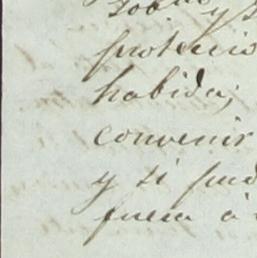 y
protecció
habida;
convenir
y si pud
fuera á